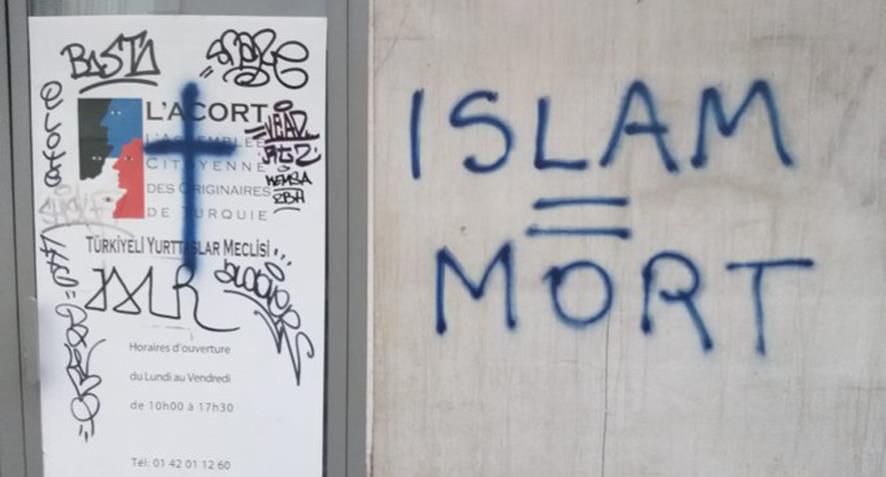 BASTA
L'ACORT
L'ASSEMBLEE
CITOYENNE
DES ORIGINAIRES
DE TURQUIE
TÜRKİYELİ YURTTAŞLAR MECLİSİ
Horaires d'ouverture
du Lundi au Vendredi
de 10h00 à 17h30
Tél: 01 42 01 12 60
ISLAM
=
MORT